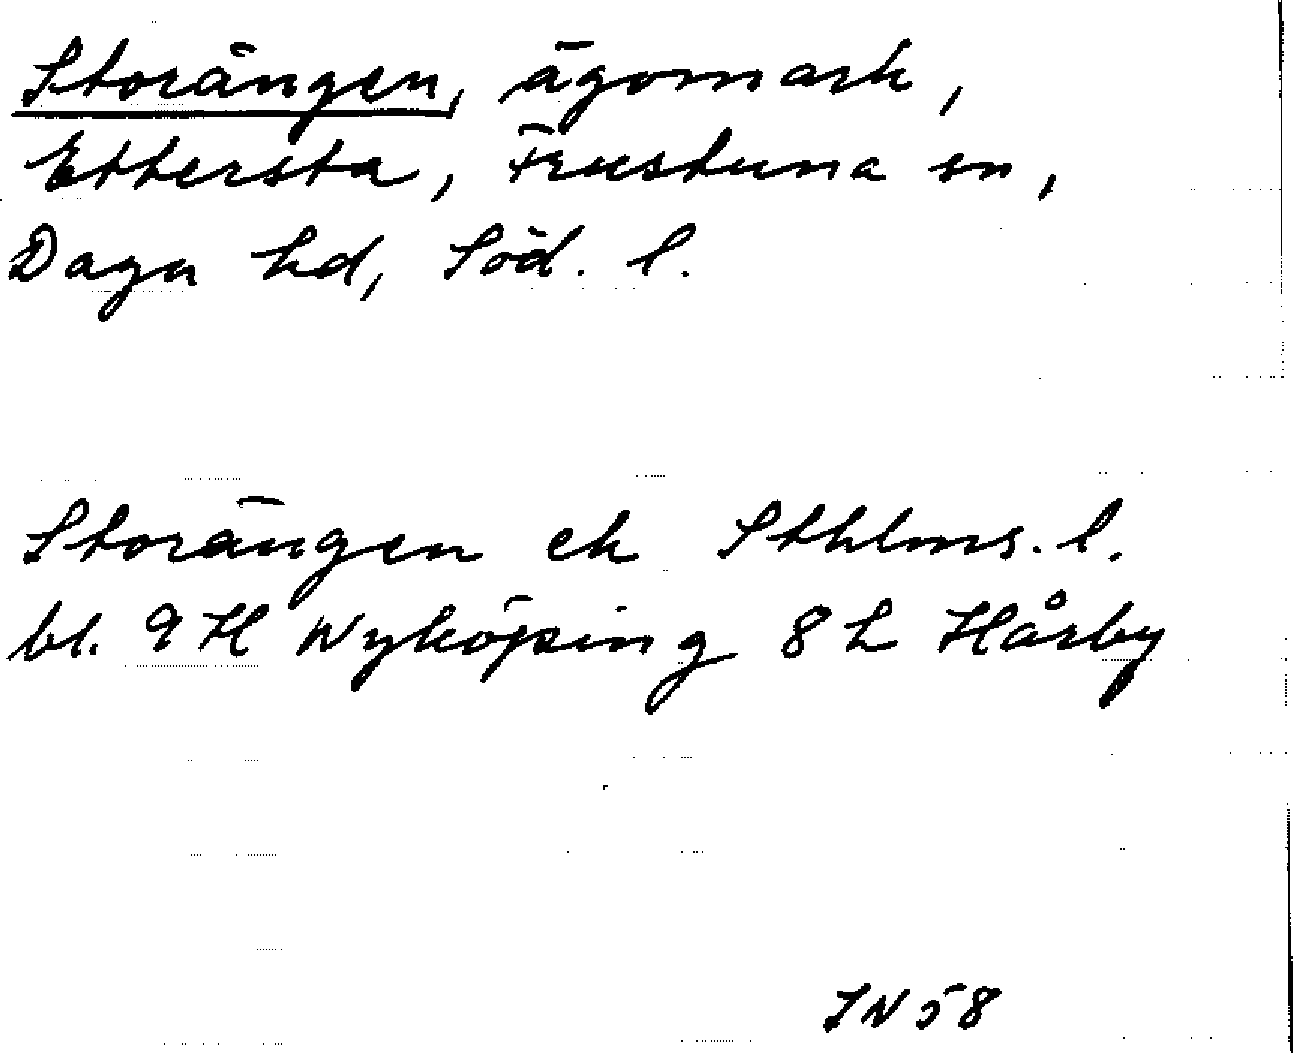 Storängen, ägomark,
Ettersta, Frustuna sn,
Daga hd, Söd. l.
Storängen ek Sthlms. l.
bl. 9 H Nyköping 8 h Hårby
IN 58